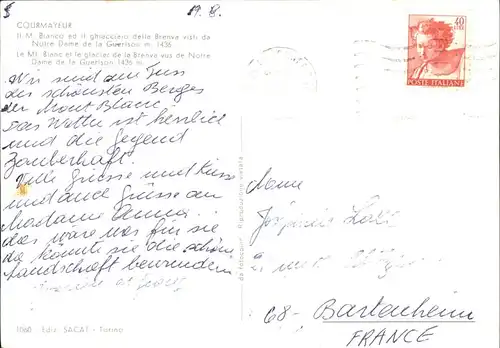 19.8.
COURMAYEUR
Il M. Bianco ed il ghiacciaio della Brenva visti da
Notre Dame de la Guerison m. 1436
Le Mt. Blanc et le glacier de la Brenva vus de Notre
Dame de la Guerison 1436 m.
40
LIRE
POSTE ITALIANE
Wir sind am Fuss
des schönsten Berges
der Mont Blanc.
Das Wetter ist herrlich
und die Gegend
Zauberhaft.
Viele Grüsse und Küsse
und auch Grüsse an
Madame Anna..
das wäre was für sie
da könnte sie die schöne
Landschaft bewundern
da fotocolor Riproduzione vietata
Mme
68- Bartenheim
FRANCE
1060 Ediz. SACAT - Torino